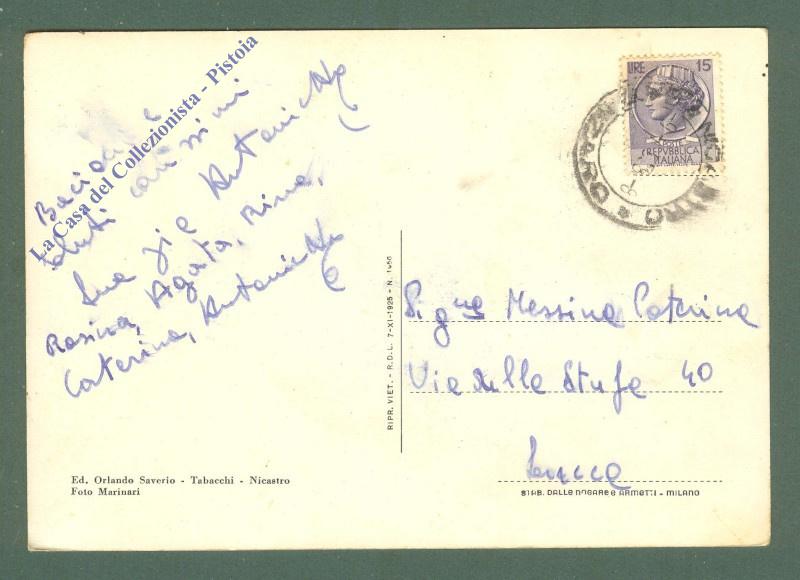 La Casa del Collezionista - Pistoia
Bacioni e
saluti carissimi
Sua zia Antonietta
Rosina, Agata, Rina,
Caterina, Antonietta
LIRE 15
POSTE
REPVBBLICA
ITALIANA
RIPR. VIET. - R.D.L. 7-XI-1925 - N. 1
Sig.na Messina Caterina
Via delle Stufe 40
Ed. Orlando Saverio - Tabacchi - Nicastro
Foto Marinari
STAB. DALLE NOGARE e ARMETTI - MILANO